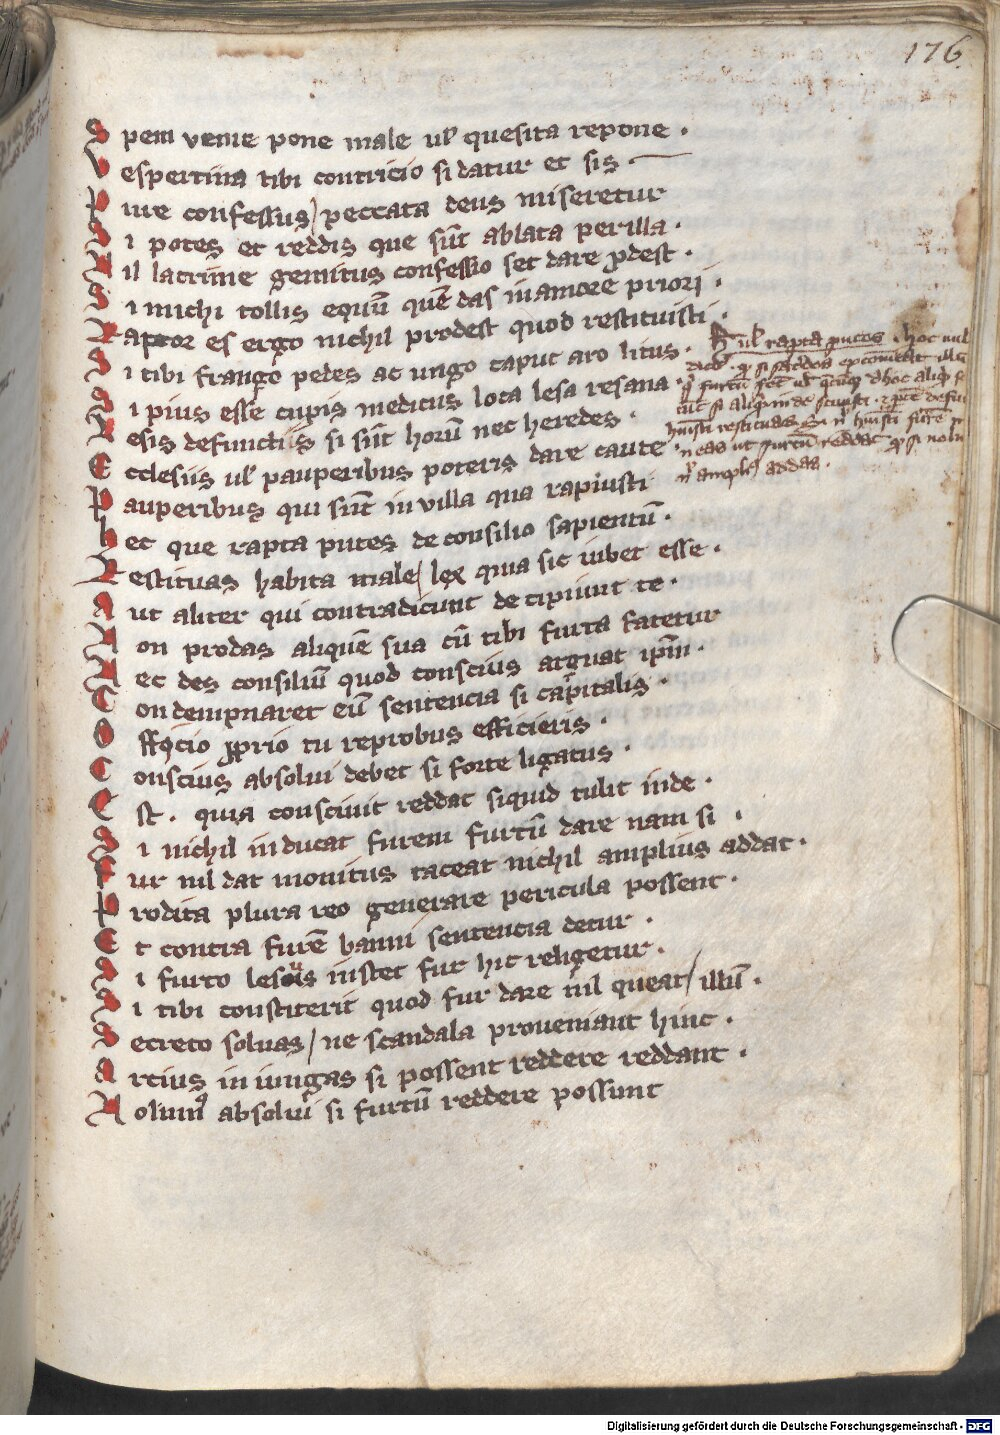 176
Spem venie pone male ul̅ quesita repone ·
Vespertina tibi contricio si datur et sis ·
Pure confessus / peccata deus miseretur
Si potes et reddis que su̅t ablata per illa ·
Nil lacrime gemitus confessio set dare p̱dest ·
Si michi tollis equu̅ que̅ das in amore priori ·
Raptor es ergo nichil prodest quod restituisti ·
Si tibi frango pedes ac ungo caput aro litus ·
Si pius esse cupis medicus loca lesa resana ·
Resis defunctis si su̅t horu̅ nec heredes ·
Ecclesiis ul̅ pauperibus poteris dare caute ·
Pauperibus qui su̅t in villa qua rapuisti
hec que rapta putes de consilio sapientu̅ ·
Restituas habita male / lex quia sic iubet esse ·
Aut aliter qui contradicunt decipiunt te ·
Non prodas alique̅ sua cu̅ tibi furta fatetur
Nec des consiliu̅ quod conscius arguat ip̅m ·
Condempnaret eu̅ sentencia si capitalis ·
Officio p̱prio tu reprobus efficieris ·
Conscius absolui debet si forte ligatus ·
Est · quia consciuit reddat siquid tulit inde ·
Si nichil inducat furem furtu̅ dare nam si ·
Fur nil dat monitus taceat nichil amplius addat ·
Prodita plura reo generare pericula possent ·
Et contra fure̅ banni sentencia detur ·
Si furto lesus instet fur hic religetur ·
Si tibi constiterit quod fur dare nil queat / illu̅ ·
Secreto soluas / ne scandala proueniant hinc ·
Arcius iniungas si possent reddere reddant ·
Nolumꝰ absolui si furtu̅ reddere possunt
ul̅ rapta putes · hoc
reddat
addas ·
Digitalisierung gefördert durch die Deutsche Forschungsgemeinschaft - DFG